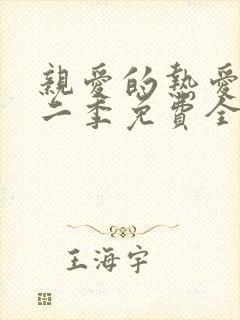 親愛的熱愛
二季免費全
王海宇